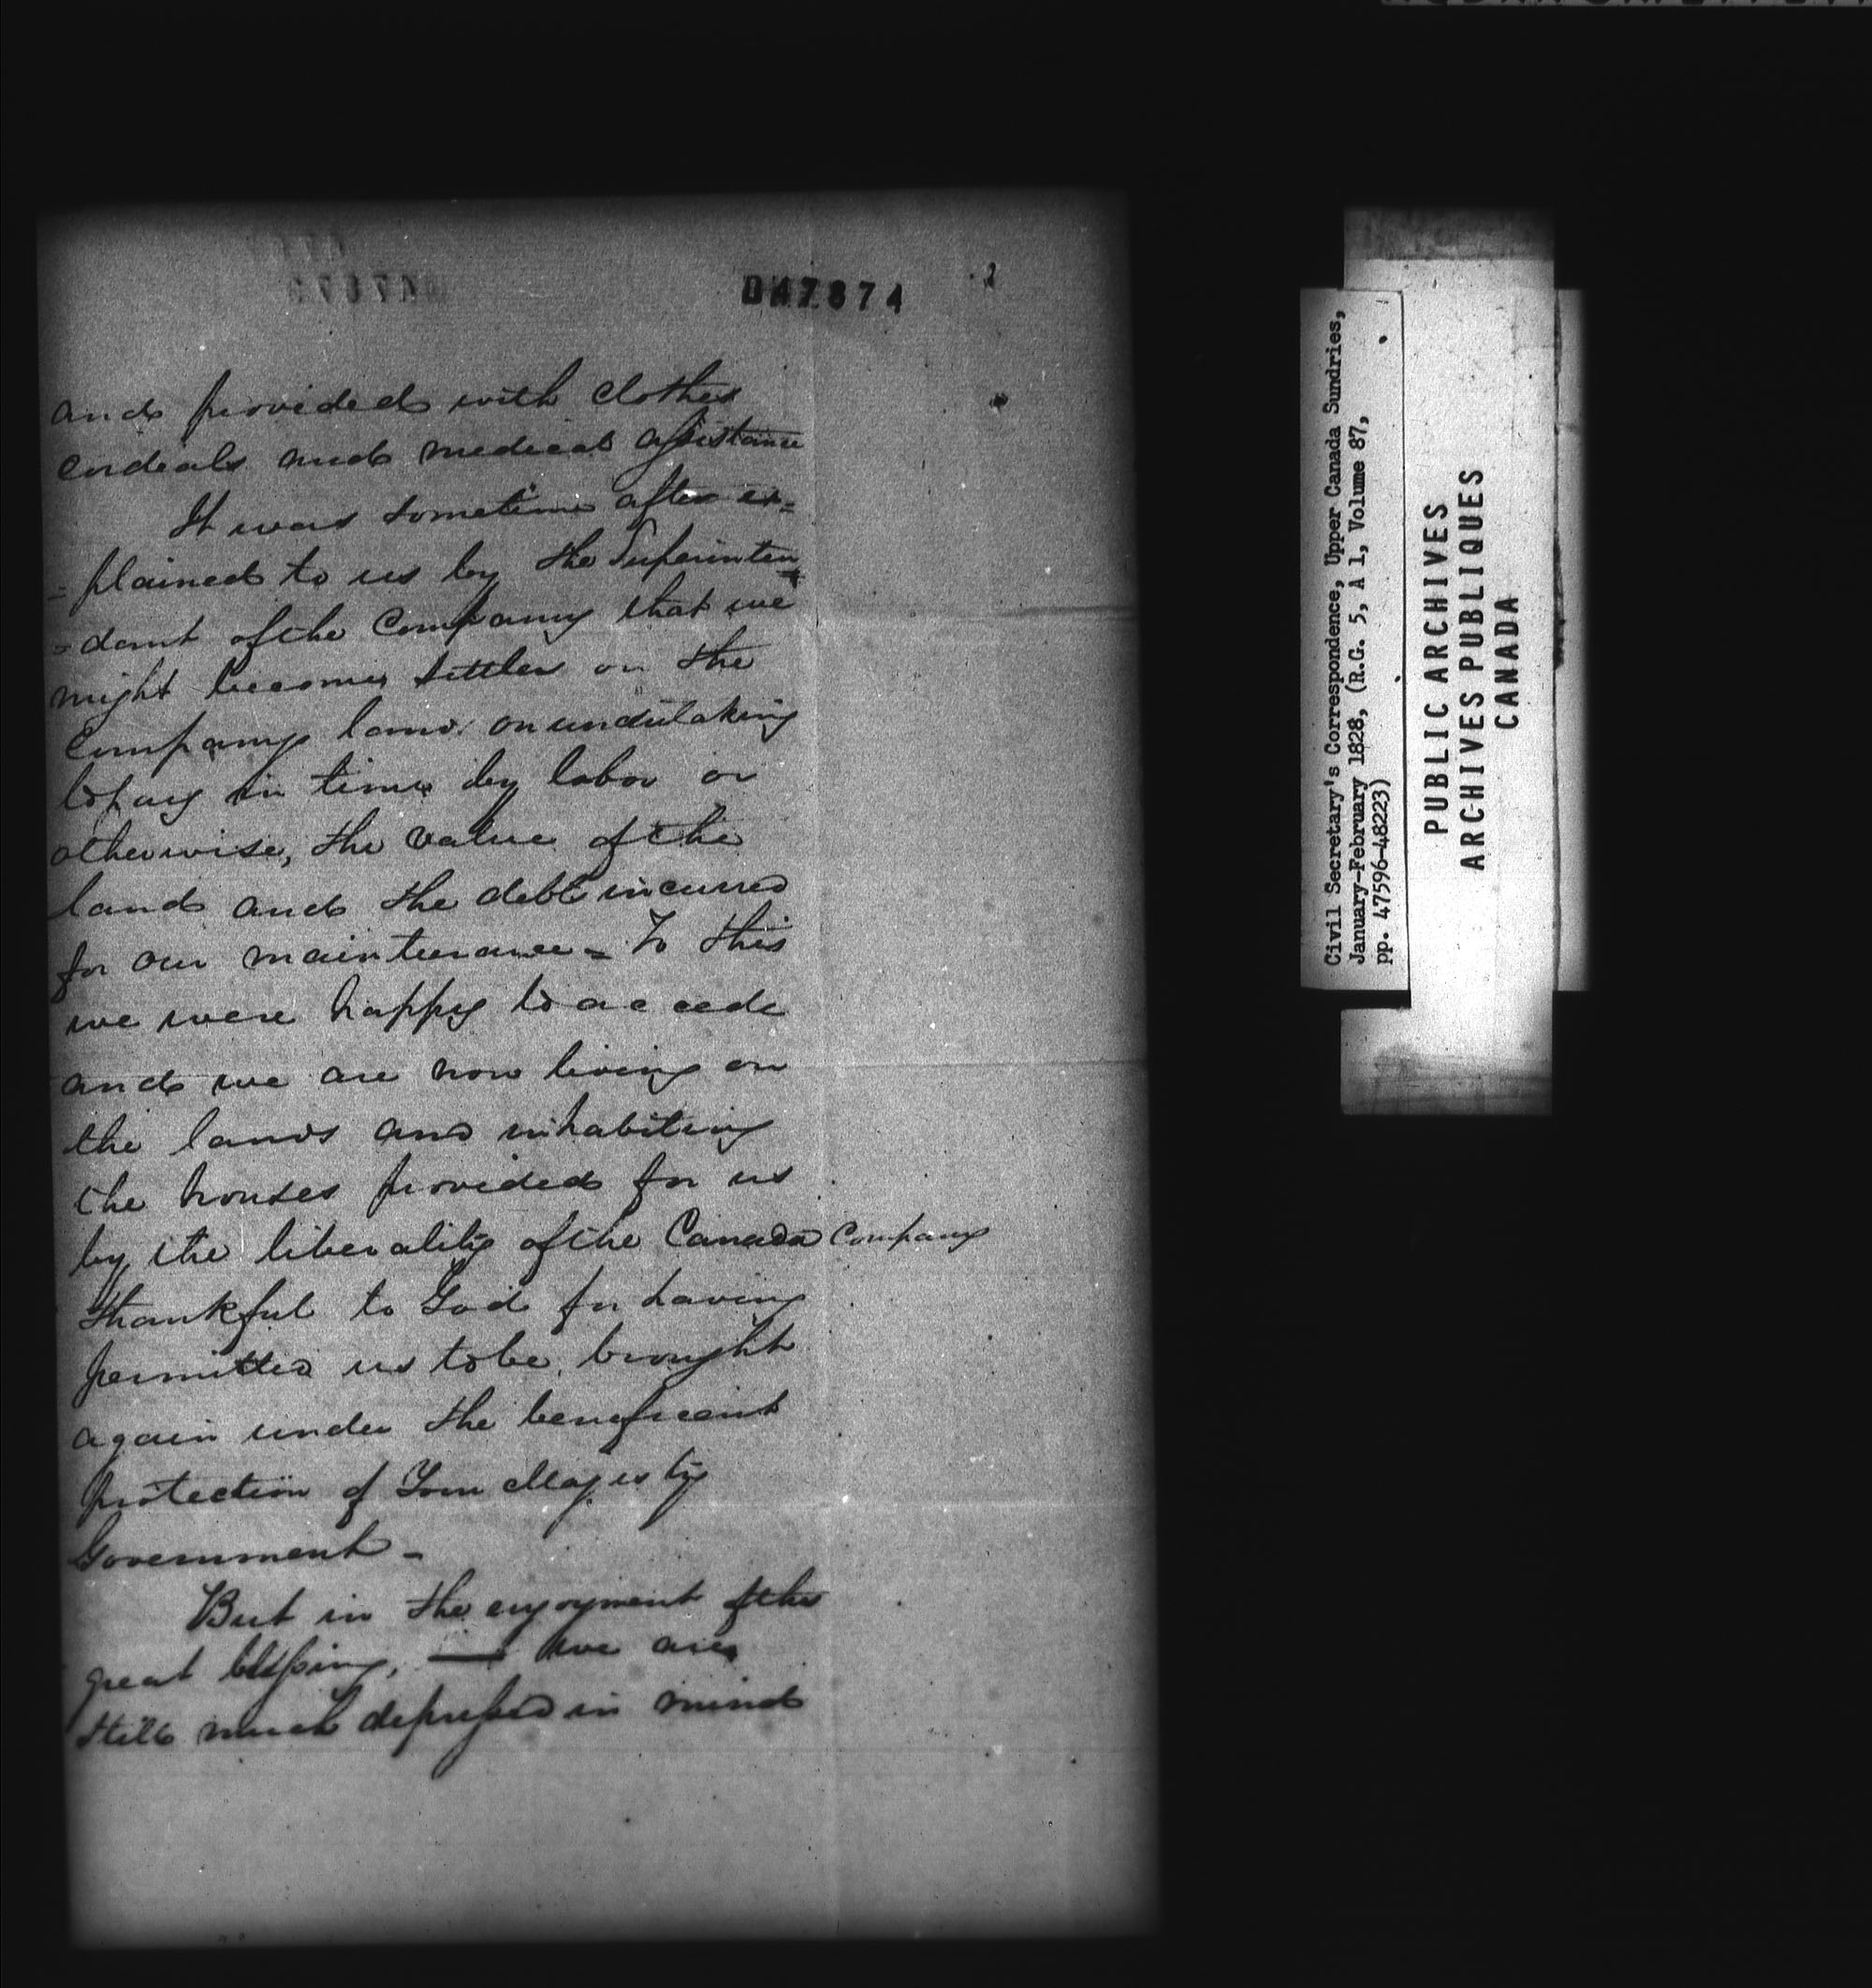 047874
2
and provided with clothes
cordials and medical assistance
It was sometime after ex=
=plained to us by the Superinten
=dant of the Company that we
might become settlers on the
Company land on undertaking
to pay in time by labor or
otherwise, the value of the
land and the debt incurred
for our maintenance = To this
we were happy to accede
and we are now living on
the lands and inhabiting
the houses provided for us
by the liberality of the Canada Company
thankful to God for having
permitted us to be brought
again under the beneficent
protection of Your Majesty
Government -
But in the enjoyment of this
great blessing, we are
still much depressed in mind
Civil Secretary's Correspondence, Upper Canada Sundries,
January-February 1828, (R.G. 5, A 1, Volume 87,
pp. 47596-48223)
PUBLIC ARCHIVES
ARCHIVES PUBLIQUES
CANADA